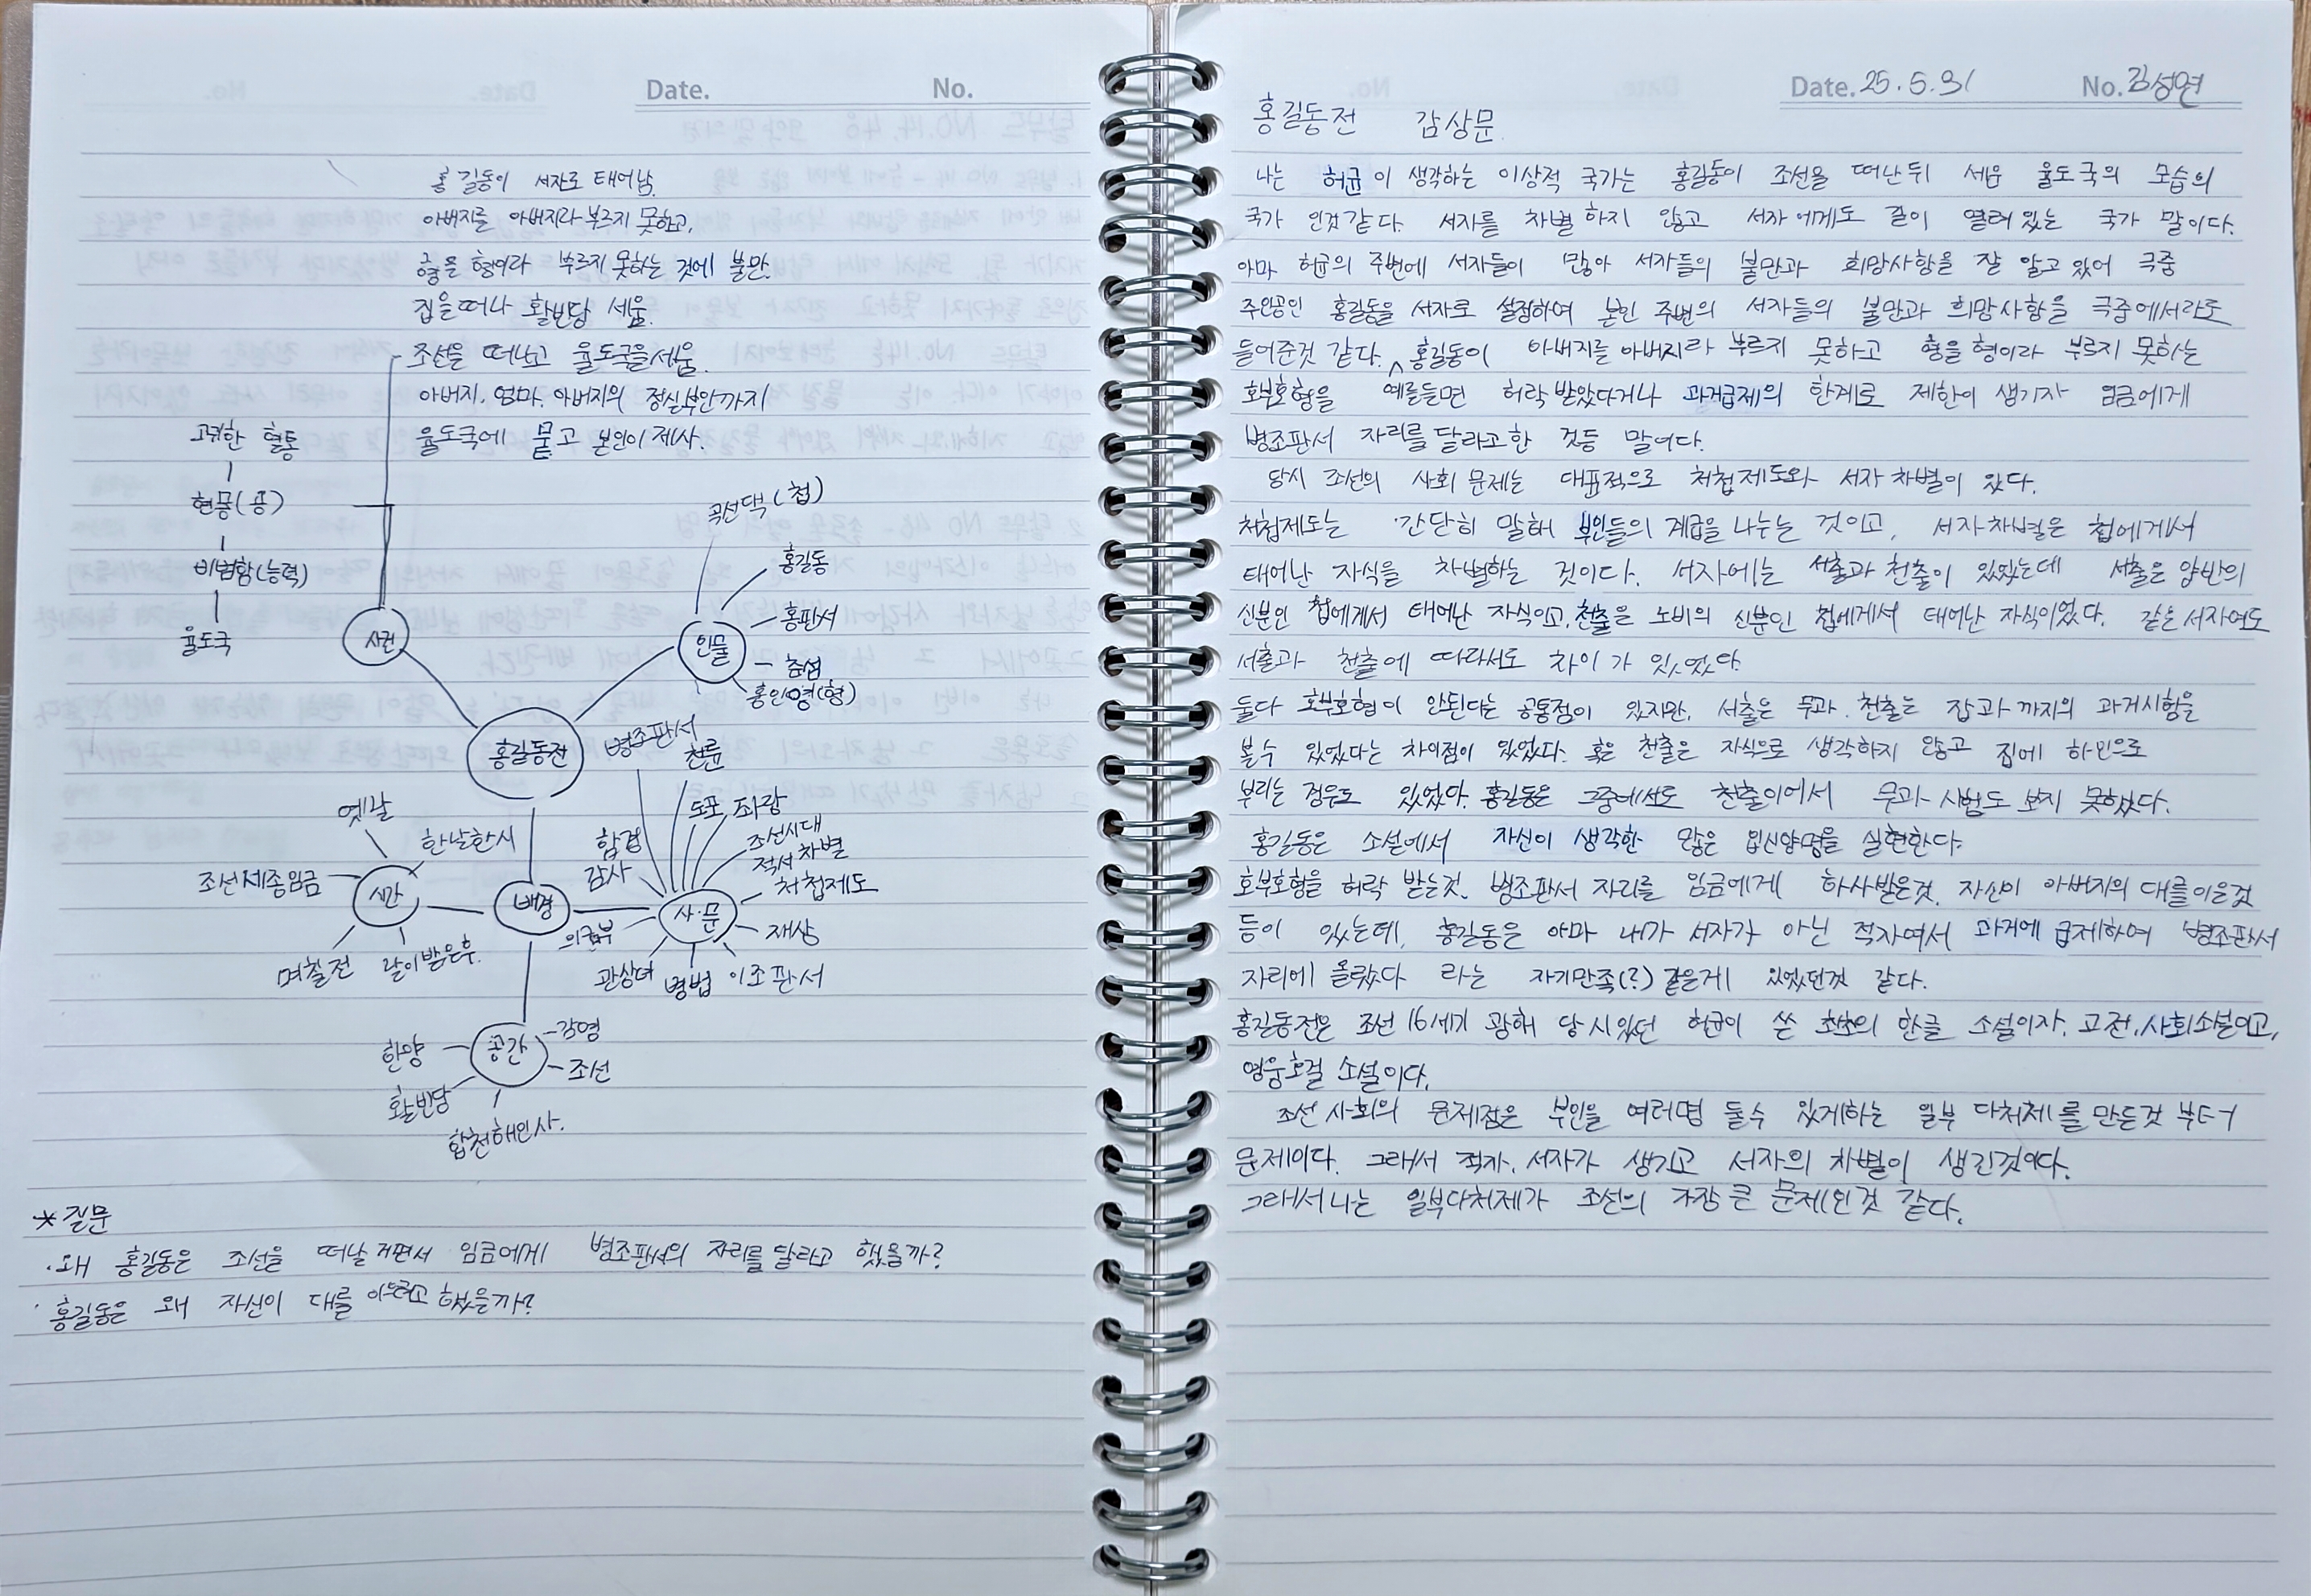 Date.
No.
홍길동이 서자로 태어남.
아버지를 아버지라 부르지 못하고,
형을 형이라 부르지 못하는 것에 불만.
집을 떠나 활빈당 세움.
조선을 떠나고 율도국을 세움.
아버지, 엄마, 아버지의 정실부인까지
율도국에 묻고 본인이 제사.
고귀한 혈통
현몽(용)
비범함(능력)
율도국
사건
곡선댁(첩)
홍길동
홍판서
춘섬
홍인형(형)
인물
홍길동전
병조판서
천륜
도포
좌랑
조선시대
적서차별
처첩제도
합경
감사
옛날
한날한시
조선세종임금
시간
며칠전
날이밝은후.
배경
사·문
의금부
재상
관상녀
병법
이조판서
공간
감영
한양
조선
활빈당
합천해인사.
*질문
·왜 홍길동은 조선을 떠날거면서 임금에게 병조판서의 자리를 달라고 했을까?
·홍길동은 왜 자신이 대를 이으려고 했을까?
Date. 25.5.31 No. 김성연
홍길동전 감상문.
나는 허균이 생각하는 이상적 국가는 홍길동이 조선을 떠난뒤 세운 율도국의 모습의
국가 인것같다. 서자를 차별 하지 않고 서자에게도 길이 열려 있는 국가 말이다.
아마 허균의 주변에 서자들이 많아 서자들의 불만과 희망사항을 잘 알고 있어 극중
주인공인 홍길동을 서자로 설정하여 본인 주변의 서자들의 불만과 희망사항을 극중에서라도
들어준것 같다. 홍길동이 아버지를 아버지라 부르지 못하고 형을 형이라 부르지 못하는
호부호형을 예를들면 허락 받았다거나 과거급제의 한계로 제한이 생기자 임금에게
병조판서 자리를 달라고한 것등 말이다.
당시 조선의 사회 문제는 대표적으로 처첩제도와 서자 차별이 있다.
처첩제도는 간단히 말해 부인들의 계급을 나누는 것이고, 서자차별은 첩에게서
태어난 자식을 차별하는 것이다. 서자에는 서출과 천출이 있었는데 서출은 양반의
신분인 첩에게서 태어난 자식이고, 천출은 노비의 신분인 첩에게서 태어난 자식이었다. 같은 서자여도
서출과 천출에 따라서도 차이가 있었다.
둘다 호부호형이 안된다는 공통점이 있지만, 서출은 무과, 천출는 잡과 까지의 과거시험을
볼수 있었다는 차이점이 있었다. 혹은 천출은 자식으로 생각하지 않고 집에 하인으로
부리는 경우도 있었다. 홍길동은 그중에서도 천출이어서 무과 시험도 보지 못했다.
홍길동은 소설에서 자신이 생각한 많은 입신양명을 실현한다.
호부호형을 허락 받는것, 병조판서 자리를 임금에게 하사받은것, 자신이 아버지의 대를이은것
등이 있는데, 홍길동은 아마 내가 서자가 아닌 적자여서 과거에 급제하여 병조판서
자리에 올랐다 라는 자기만족(?) 같은게 있었던것 같다.
홍길동전은 조선 16세기 광해 당시있던 허균이 쓴 최초의 한글 소설이자, 고전, 사회소설이고,
영웅호걸 소설이다.
조선 사회의 문제점은 부인을 여러명 둘수 있게하는 일부 다처제를 만든것 부터
문제이다. 그래서 적자, 서자가 생기고 서자의 차별이 생긴것이다.
그래서 나는 일부다처제가 조선의 가장 큰 문제인것 같다.